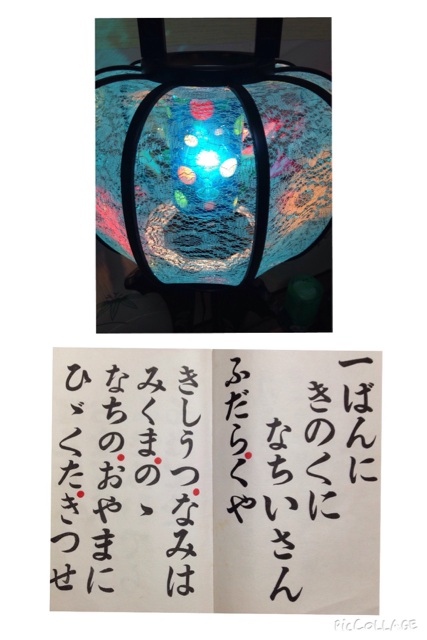 一ばんに
きのくに
なちいさん
ふだらくや
きしうつなみは
みくまのゝ
なちのおやまに
ひゞくたきつせ
PicCOLLAGE